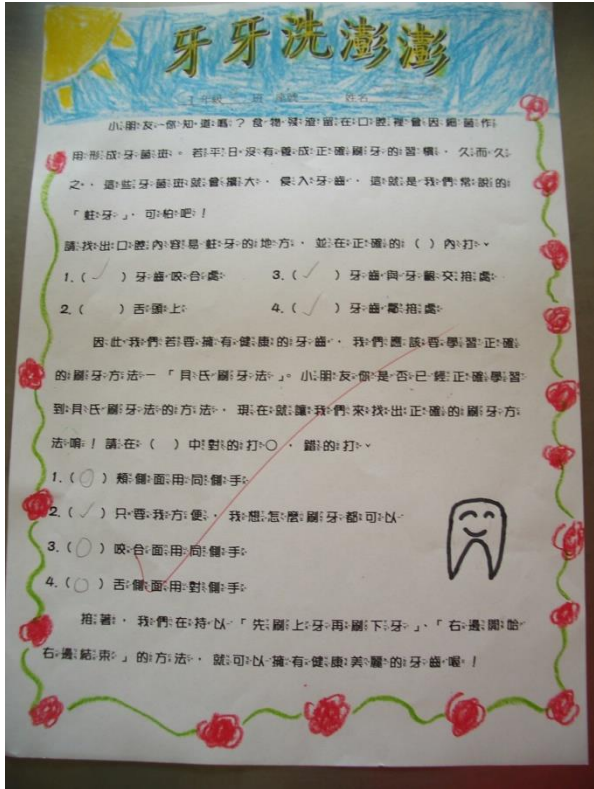 牙牙洗澎澎
1年級 班 座號 姓名
小朋友~你知道嗎？食物殘渣留在口腔裡會因細菌作
用形成牙菌斑。若平日沒有養成正確刷牙的習慣，久而久
之，這些牙菌斑就會擴大，侵入牙齒，這就是我們常說的
「蛀牙」，可怕吧！
請找出口腔內容易蛀牙的地方，並在正確的（ ）內打ˇ
1.（✓）牙齒咬合處 3.（✓）牙齒與牙齦交接處
2.（ ）舌頭上 4.（✓）牙齒鄰接處
因此我們若要擁有健康的牙齒，我們應該要學習正確
的刷牙方法－「貝氏刷牙法」。小朋友你是否已經正確學習
到貝氏刷牙法的方法，現在就讓我們來找出正確的刷牙方
法唷！請在（ ）中對的打○，錯的打ˇ
1.（○）頰側面用同側手
2.（✓）只要我方便，我想怎麼刷牙都可以
3.（○）咬合面用同側手
4.（○）舌側面用對側手
接著，我們在持以「先刷上牙再刷下牙」、「右邊開始
右邊結束」的方法，就可以擁有健康美麗的牙齒喔！